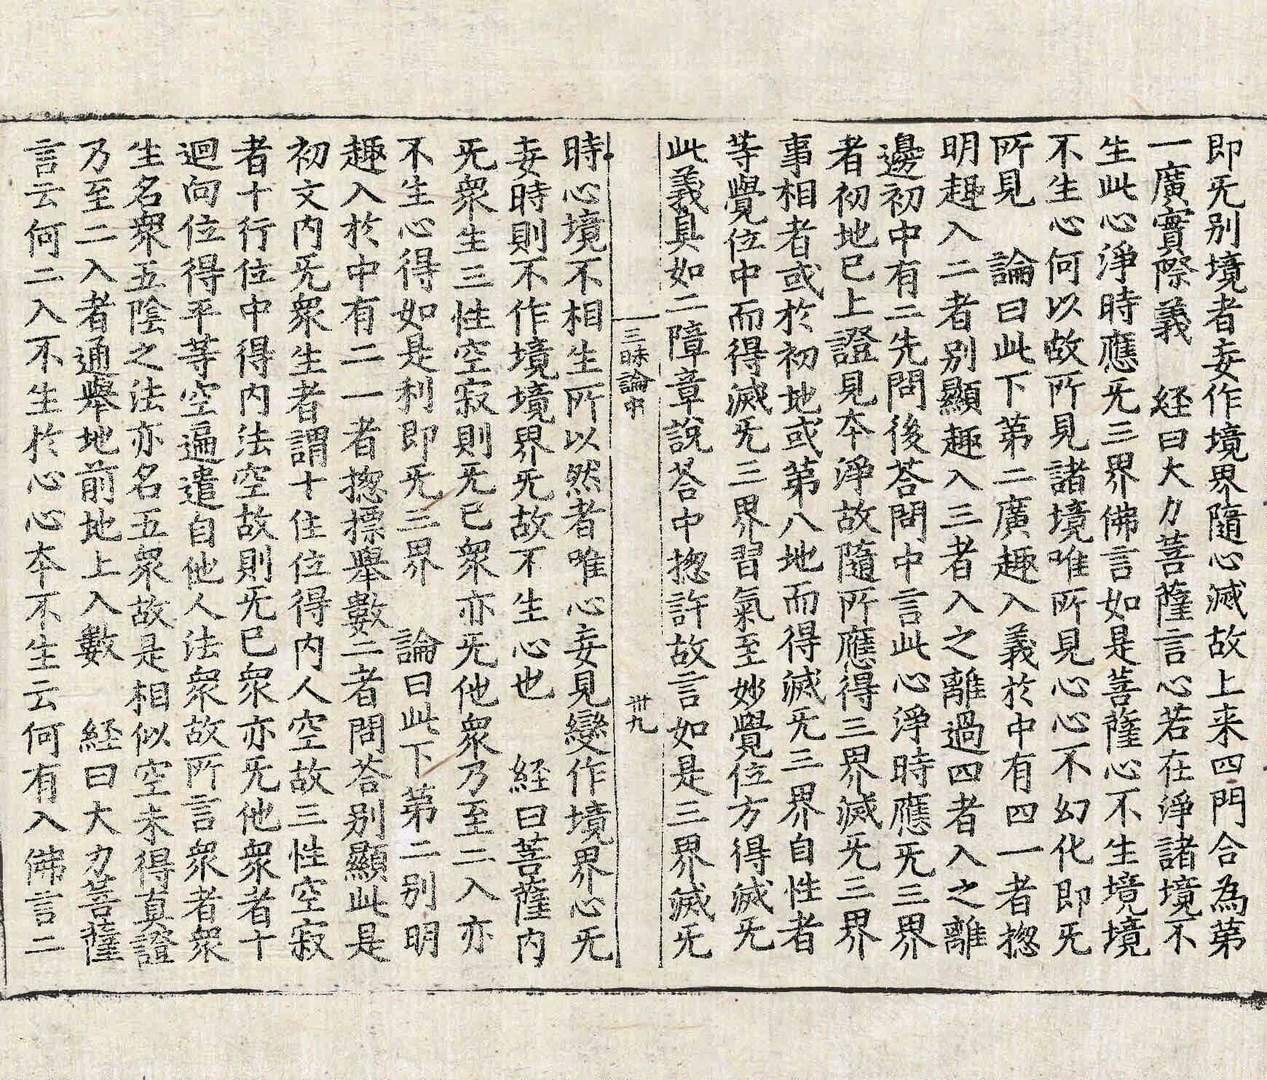 即旡别境者妄作境界隨心滅故上来四門合為第
一廣實際義　経曰大力菩薩言心若在淨諸境不
生此心淨時應旡三界佛言如是菩薩心不生境境
不生心何以故所見諸境唯所見心心不幻化即旡
所見　論曰此下第二廣趣入義於中有四一者揔
明趣入二者别顯趣入三者入之離過四者入之離
邊初中有二先問後荅問中言此心淨時應旡三界
者初地已上證見本淨故隨所應得三界滅旡三界
事相者或於初地或第八地而得滅旡三界自性者
等覺位中而得滅旡三界習氣至妙覺位方得滅旡
此義具如二障章說荅中揔許故言如是三界滅旡
三昧論中
卅九
時心境不相生所以然者唯心妄見變作境界心旡
妄時則不作境境界旡故不生心也　経曰菩薩内
旡衆生三性空寂則旡已衆亦旡他衆乃至二入亦
不生心得如是利即旡三界　論曰此下第二别明
趣入於中有二一者揔摽舉數二者問荅别顯此是
初文内旡衆生者謂十住位得内人空故三性空寂
者十行位中得内法空故則旡已衆亦旡他衆者十
迴向位得平等空遍遣自他人法衆故所言衆者衆
生名衆五陰之法亦名五衆故是相似空未得真證
乃至二入者通舉地前地上入數　経曰大力菩薩
言云何二入不生於心心本不生云何有入佛言二